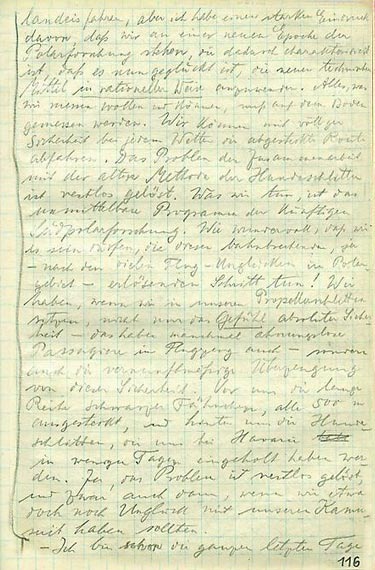 landeis fahren, aber ich habe einen starken Eindruck
davon, daß wir an einer neuen Epoche der
Polarforschung stehen, die dadurch charakterisiert
ist, daß es nun geglückt ist, die neuen technischen
Mittel in rationeller Weise anzuwenden. Alles, was
wir messen wollen und können, muß auf dem Boden
gemessen werden. Wir können mit völliger
Sicherheit bei jedem Wetter die abgesteckte Route
abfahren. Das Problem der Zusammenarbeit
mit der alten Methode der Hundeschlitten
ist restlos gelöst. Was wir tun, ist das
unmittelbare Programm der künftigen
Südpolarforschung. Wie wundervoll, daß wir
es sein dürfen, die diesen bahnbrechenden, ja
– nach den vielen Flug-Unglücken im Polar-
gebiet – erlösenden Schritt tun! Wir
haben, wenn wir in unseren Propellerschlitten
sitzen, nicht nur das Gefühl absoluter Sicher-
heit – das haben manchmal ahnungslose
Passagiere im Flugzeug auch – sondern
auch die vernunftmäßige Überzeugung
von dieser Sicherheit. Vor uns die lange
Reihe schwarzer Fähnchen, alle 500 m
ausgesteckt, und hinter uns die Hunde-
schlitten, die uns bei Havarie
in wenigen Tagen eingeholt haben wer-
den. Ja, das Problem ist restlos gelöst,
und zwar auch dann, wenn wir etwa
doch noch Unglück mit unseren
haben sollten.
– Ich bin schon die ganzen letzten Tage
116